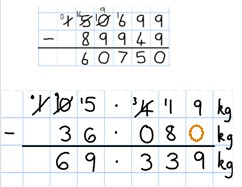 150699
− 89949
60750
105.419 kg
− 36.080 kg
69.339 kg